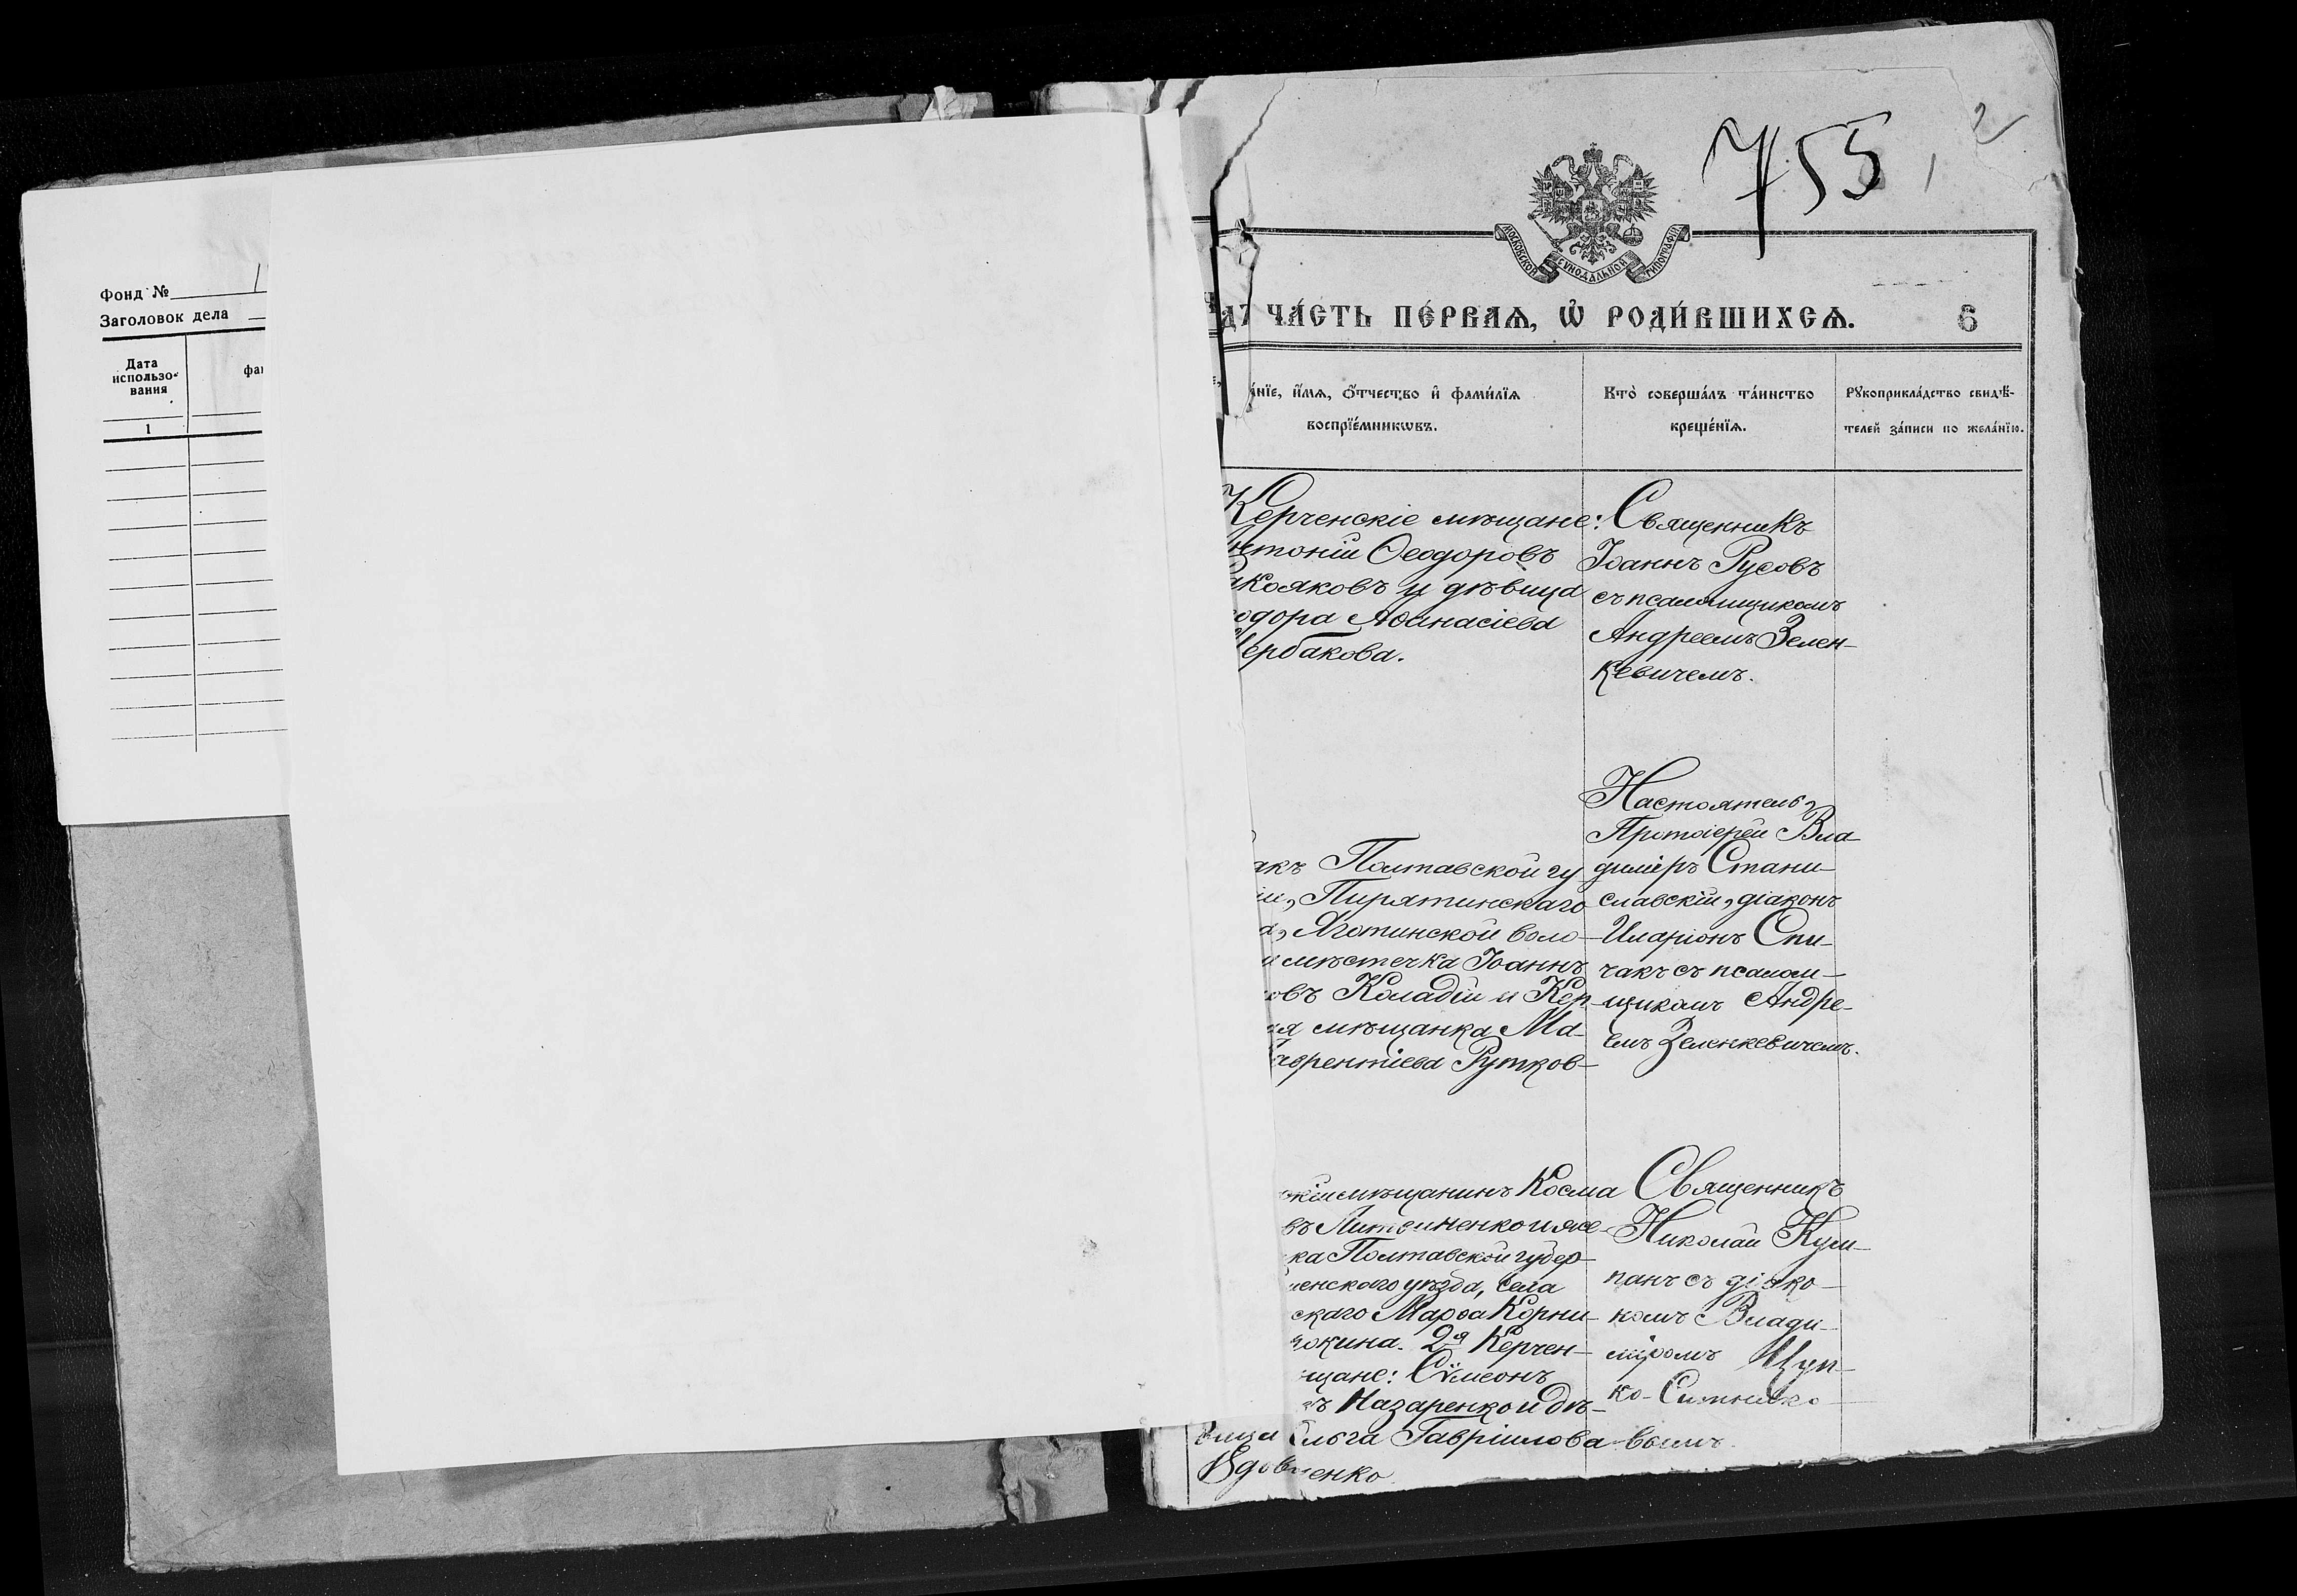 Фонд № 1
Заголовок дела
Дата
использо-
вания
1
755
2
МОСКОВСКОЙ СѴНОДАЛЬНОЙ ТИПОГРАФІИ
ЧА́СТЬ ПЕ́РВАѦ, Ѡ҆ РОДИ́ВШИХСѦ.
6
а́нїе, и҆́мѧ, ѻ҆́тчество и҆ фами́лїѧ
воспрїе́мникѡвъ.
Кто̀ соверша́лъ та́инство
креще́нїѧ.
Рꙋкоприкла́дство свидѣ́-
телей за́писи по жела́нїю.
Керченскіе мѣщане:
нтоній Ѳеодоровъ
коляковъ и дѣвица
одора Аѳанасіева
ербакова.
Священникъ
Іоаннъ Русовъ
съ псаломщикомъ
Андреемъ Зелен-
кевичемъ.
акъ Полтавской гу
іи, Пирятинскаго
а, Яготинской воло-
и мѣстечка Іоаннъ
овъ Коладій и Кер-
ая мѣщанка Ма-
аврентіева Рутков-
Настоятель,
Протоіерей Вла-
димиръ Стани-
славскій, діаконъ
Иларіонъ Спи-
чакъ съ псалом-
щикомъ Андре-
емъ Зеленкевичемъ.
скій мѣщанинъ Косма
въ Литвиненко и же-
ка Полтавской губер-
менскаго уѣзда, села
скаго Марѳа Корни-
окина. 2я Керчен-
щане: Сѵмеонъ
ъ Назаренко и дѣ-
вица Ольга Гавріилова
Вдовиенко
Священникъ
Николай Кум-
панъ съ діако-
номъ Влади-
міромъ Цуп-
ко-Ситнико-
вымъ.